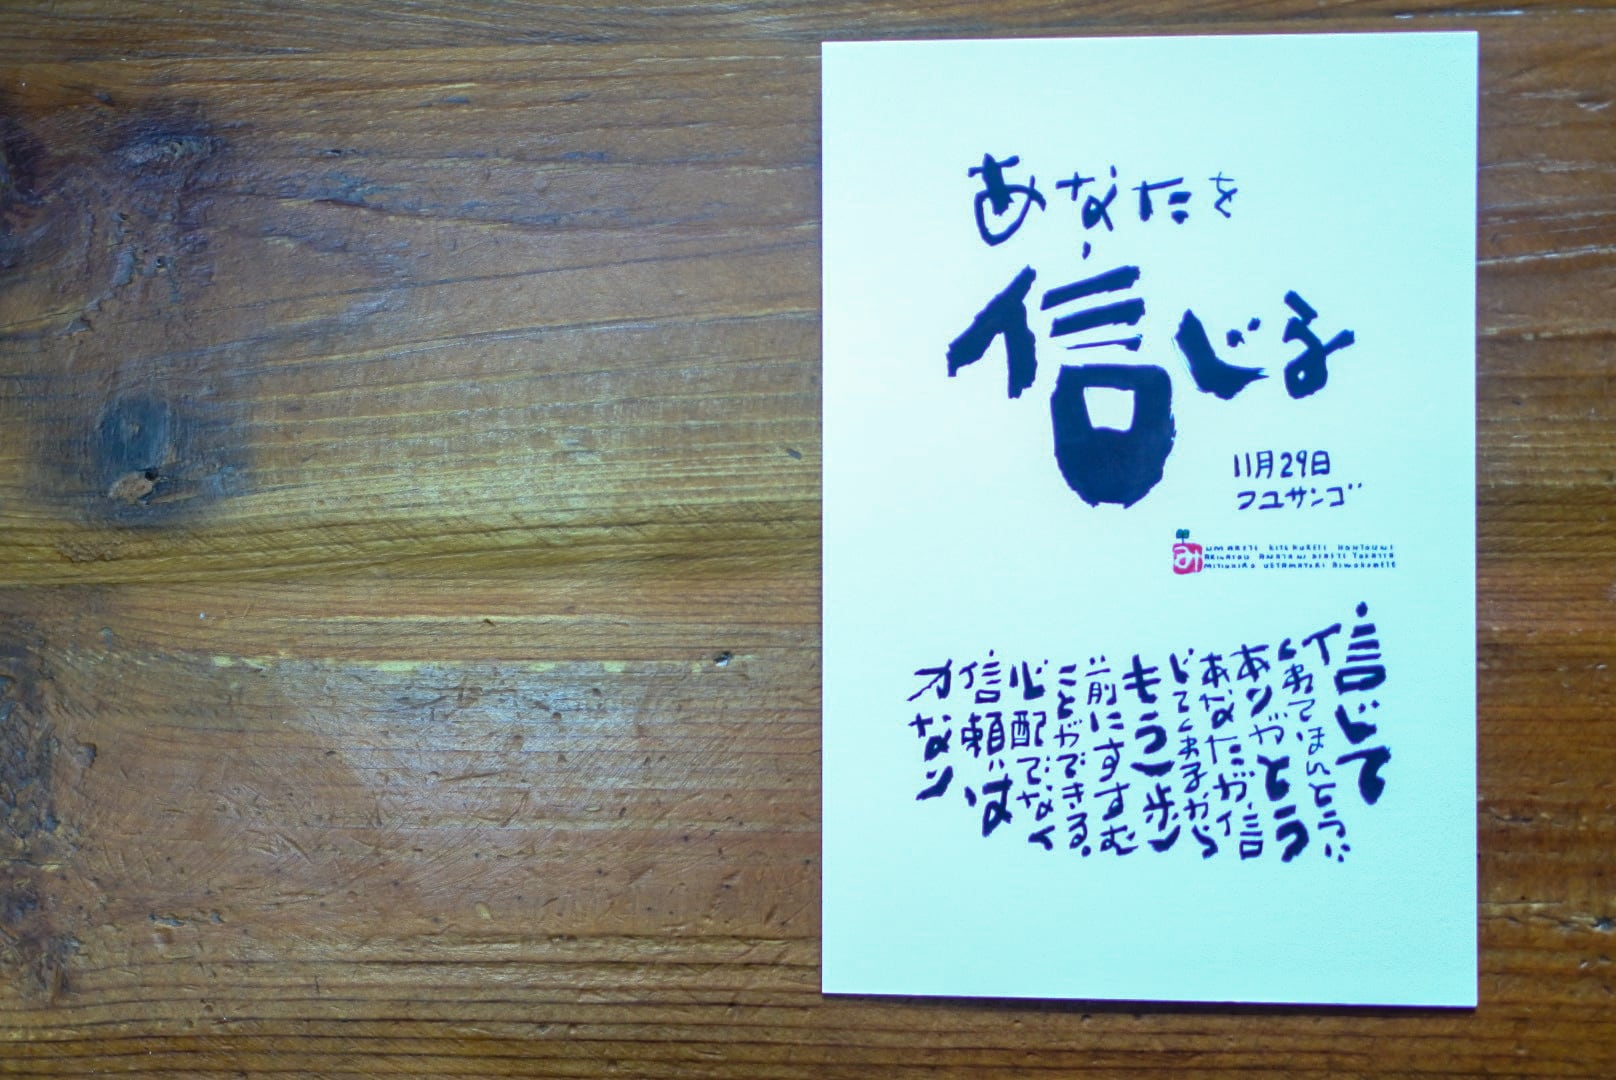 あなたを
信じる
11月29日
フユサンゴ
み
UMARETE KITEKURETE HONTOUNI
ARIGATOU ANATANI DEAETE YOKATTA
信じて
くれてほんとうに
ありがとう
あなたが信
じてくれるから
もう一歩
前にすすむ
ことができる。
心配でなく
信頼は
力なり